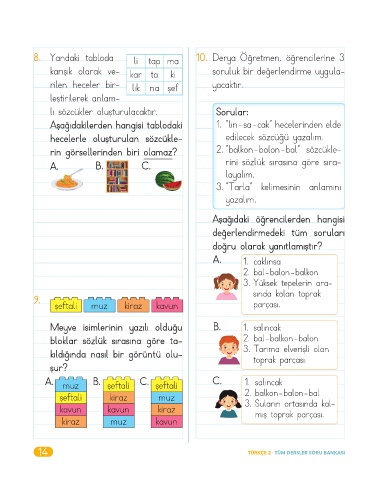 8. Yandaki tabloda
karışık olarak ve-
rilen heceler bir-
leştirilerek anlam-
lı sözcükler oluşturulacaktır.
li tap ma
kar to ki
lik na şef
Aşağıdakilerden hangisi tablodaki
hecelerle oluşturulan sözcükle-
rin görsellerinden biri olamaz?
A. B. C.
9.
şeftali muz kiraz kavun
Meyve isimlerinin yazılı olduğu
bloklar sözlük sırasına göre ta-
kıldığında nasıl bir görüntü olu-
şur?
A. B. C.
muz şeftali şeftali
şeftali kiraz muz
kavun kavun kiraz
kiraz muz kavun
10. Derya Öğretmen, öğrencilerine 3
soruluk bir değerlendirme uygula-
yacaktır.
Sorular:
1. "lın-sa-cak" hecelerinden elde
edilecek sözcüğü yazalım.
2. "balkon-balon-bal" sözcükle-
rini sözlük sırasına göre sıra-
layalım.
3. "Tarla" kelimesinin anlamını
yazalım.
Aşağıdaki öğrencilerden hangisi
değerlendirmedeki tüm soruları
doğru olarak yanıtlamıştır?
A. 1. caklınsa
2. bal-balon-balkon
3. Yüksek tepelerin ara-
sında kalan toprak
parçası.
B. 1. salıncak
2. bal-balkon-balon
3. Tarıma elverişli olan
toprak parçası.
C. 1. salıncak
2. balkon-balon-bal
3. Suların ortasında kal-
mış toprak parçası.
14
TÜRKÇE 2 - TÜM DERSLER SORU BANKASI